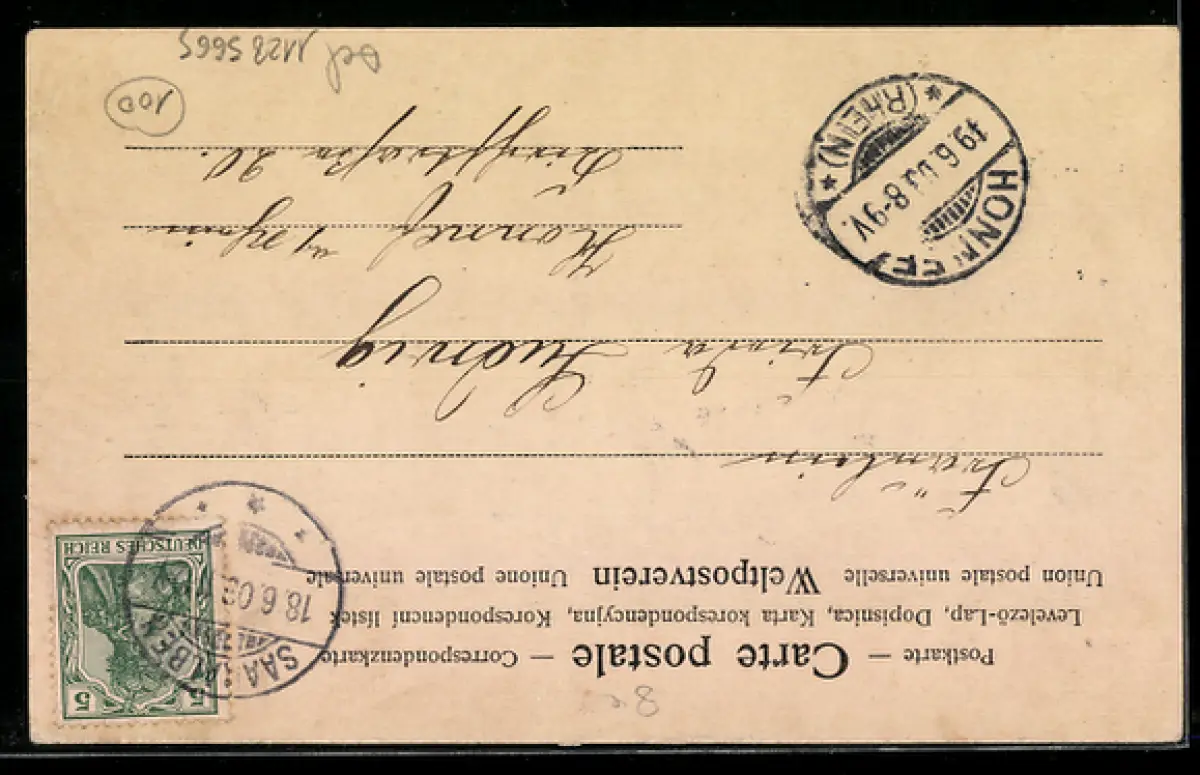 Postkarte — Carte postale — Correspondenzkarte
Levelező-Lap, Dopisnica, Karta korespondencyjna, Korespondenční lístek
Union postale universelle Weltpostverein Unione postale universale
DEUTSCHES REICH
5 5
SAARALBEN
18.6.03
Fräulein
Frieda Ludwig
Honnef a/Rhein
20.
HONNEF
19.6.03 8-9V.
* (RHEIN) *
100
1128 5665